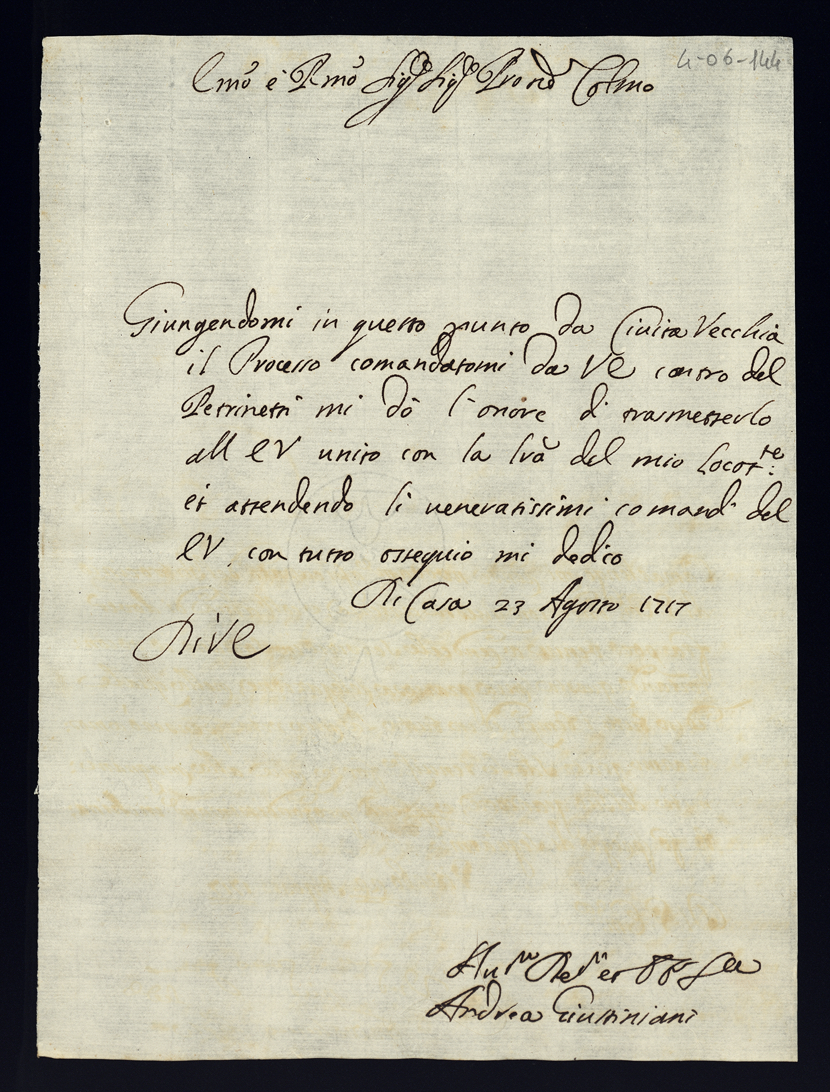 4-06-144
Emo è Rmo Sigr Sigr Prone Colmo
Giungendomi in questo punto da Civita Vecchia
il Processo comandatomi da VE contro del
Petrinetti mi dò l'onore di trasmetterlo
all EV unito con la lrã del mio Locotte:
et attendendo li veneratissimi comandi del
EV, con tutto ossequio mi dedico
Di Casa 23 Agosto 1717
Di VE
Andrea Giustiniani